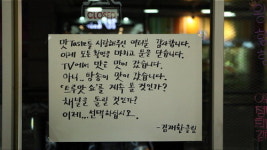 CLOSED
맛 Taste를 사랑해주신 여러분 감사합니다.
이제 모든 촬영을 마치고 문을 닫습니다.
TV에서 맛은 맛이 갔습니다.
아니.. 방송이 맛이 갔습니다.
'트루맛 쇼'를 계속 볼 것인가?
채널을 돌릴 것인가?
이제...선택하십시오.
-김재환 올림